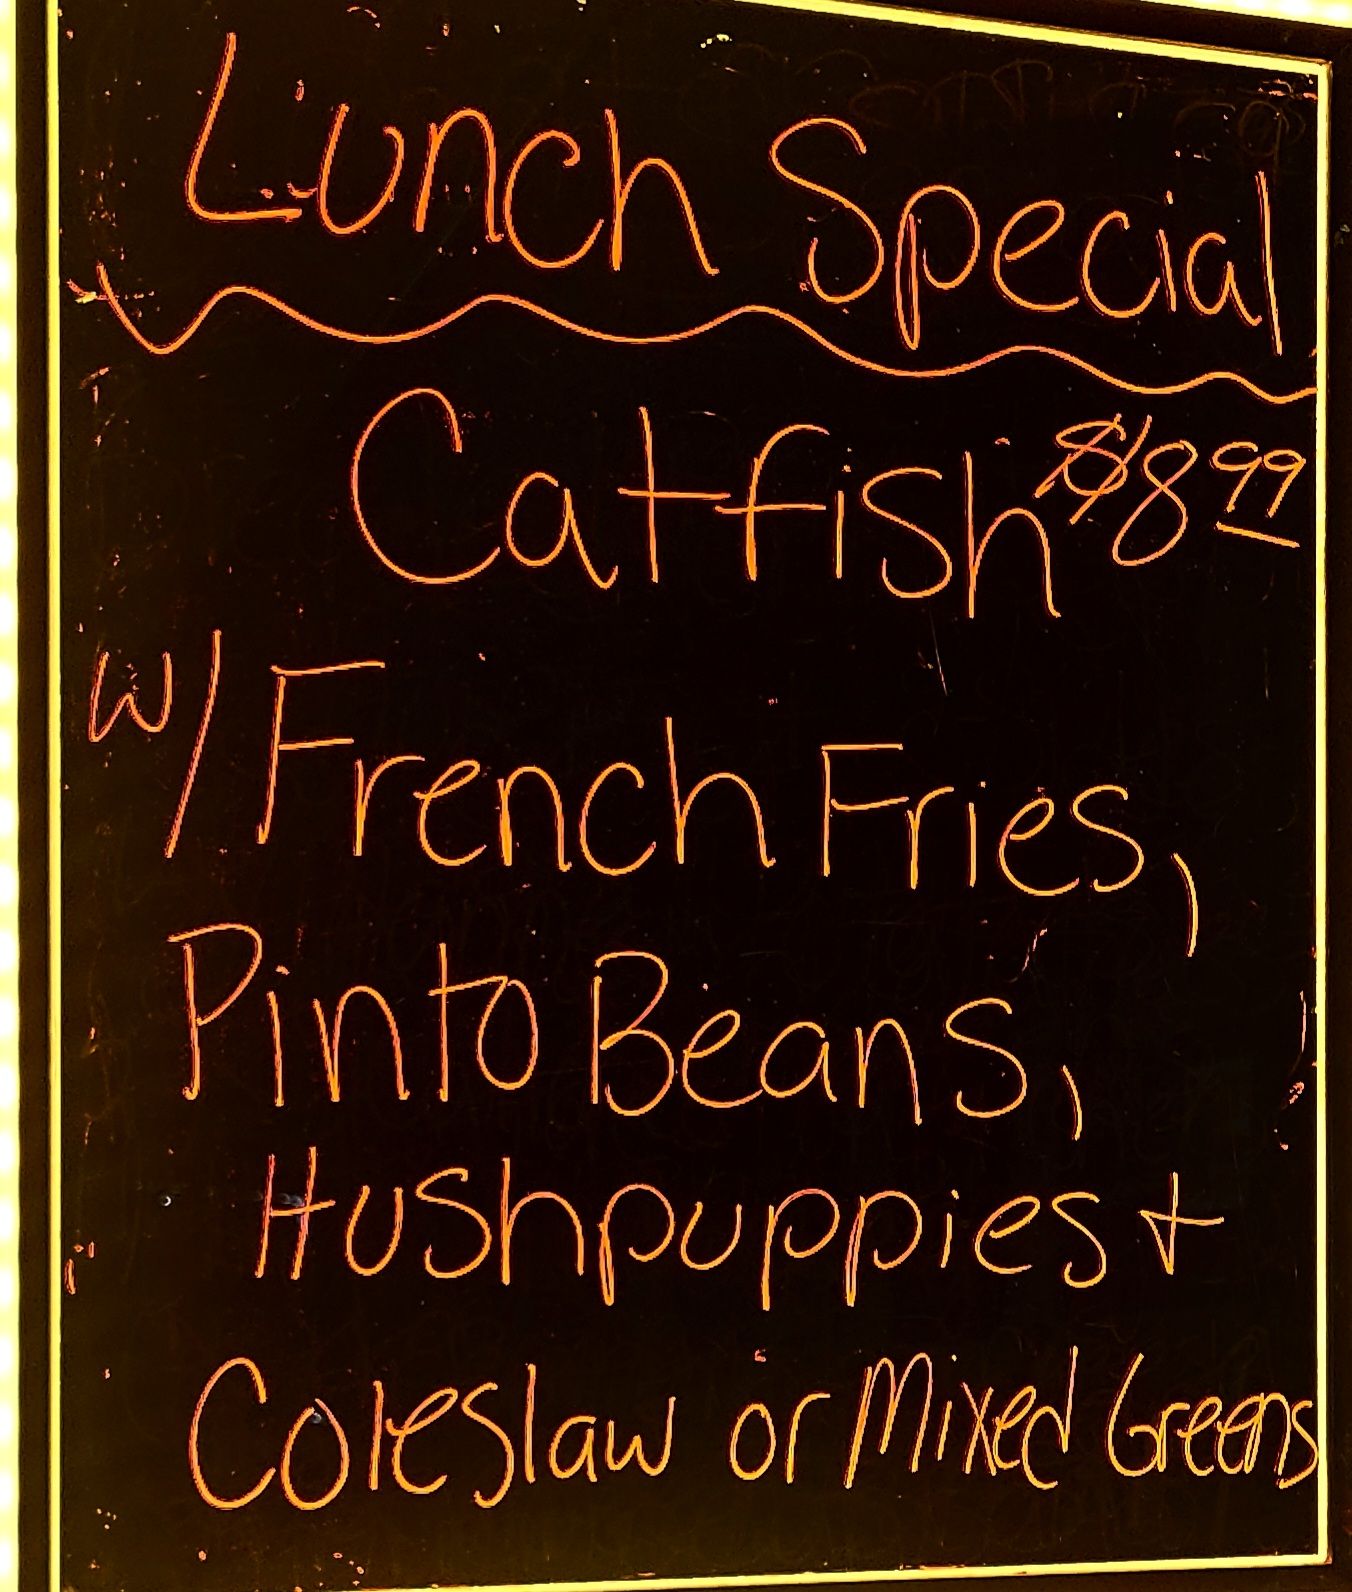 Lunch Special
Catfish $8 99
w/ French Fries,
Pinto Beans,
Hushpuppies +
Coleslaw or Mixed Greens